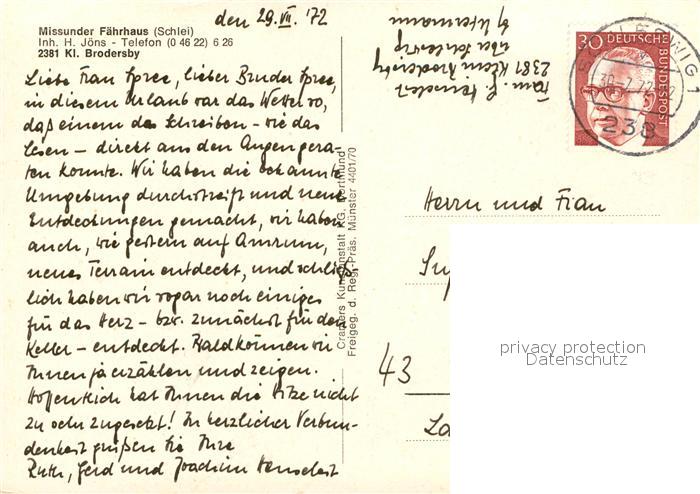 den 29. VII. '72
Missunder Fährhaus (Schlei)
Inh. H. Jöns - Telefon (0 46 22) 6 26
2381 Kl. Brodersby
Liebe Frau Spree, lieber Bruder Spree,
in diesem Urlaub war das Wetter so,
daß einem das Schreiben - wie das
Lesen - direkt aus den Augen gera-
ten konnte. Wir haben die bekannte
Umgebung durchstreift und neue
Entdeckungen gemacht, wir haben
auch, wie gestern auf Amrum,
neues Terrain entdeckt, und schließ-
lich haben wir sogar noch einiges
für das Herz - bzw. zunächst für den
Keller - entdeckt. Bald können wir
Ihnen ja erzählen und zeigen.
Hoffentlich hat Ihnen die Hitze nicht
zu sehr zugesetzt! In herzlicher Verbun-
denheit grüßen Sie Ihre
Ruth, Gerd und Joachim Henschert
Cramers Kunstanstalt KG, Dortmund
Freigeg. d. Reg.-Präs. Münster 4401/70
Fam. G.
2381 Klein Brodersby
über Schleswig
by
30 DEUTSCHE BUNDESPOST
SCHLESWIG 1
30.-7.72
238
Herrn und Frau
43
privacy protection
Datenschutz